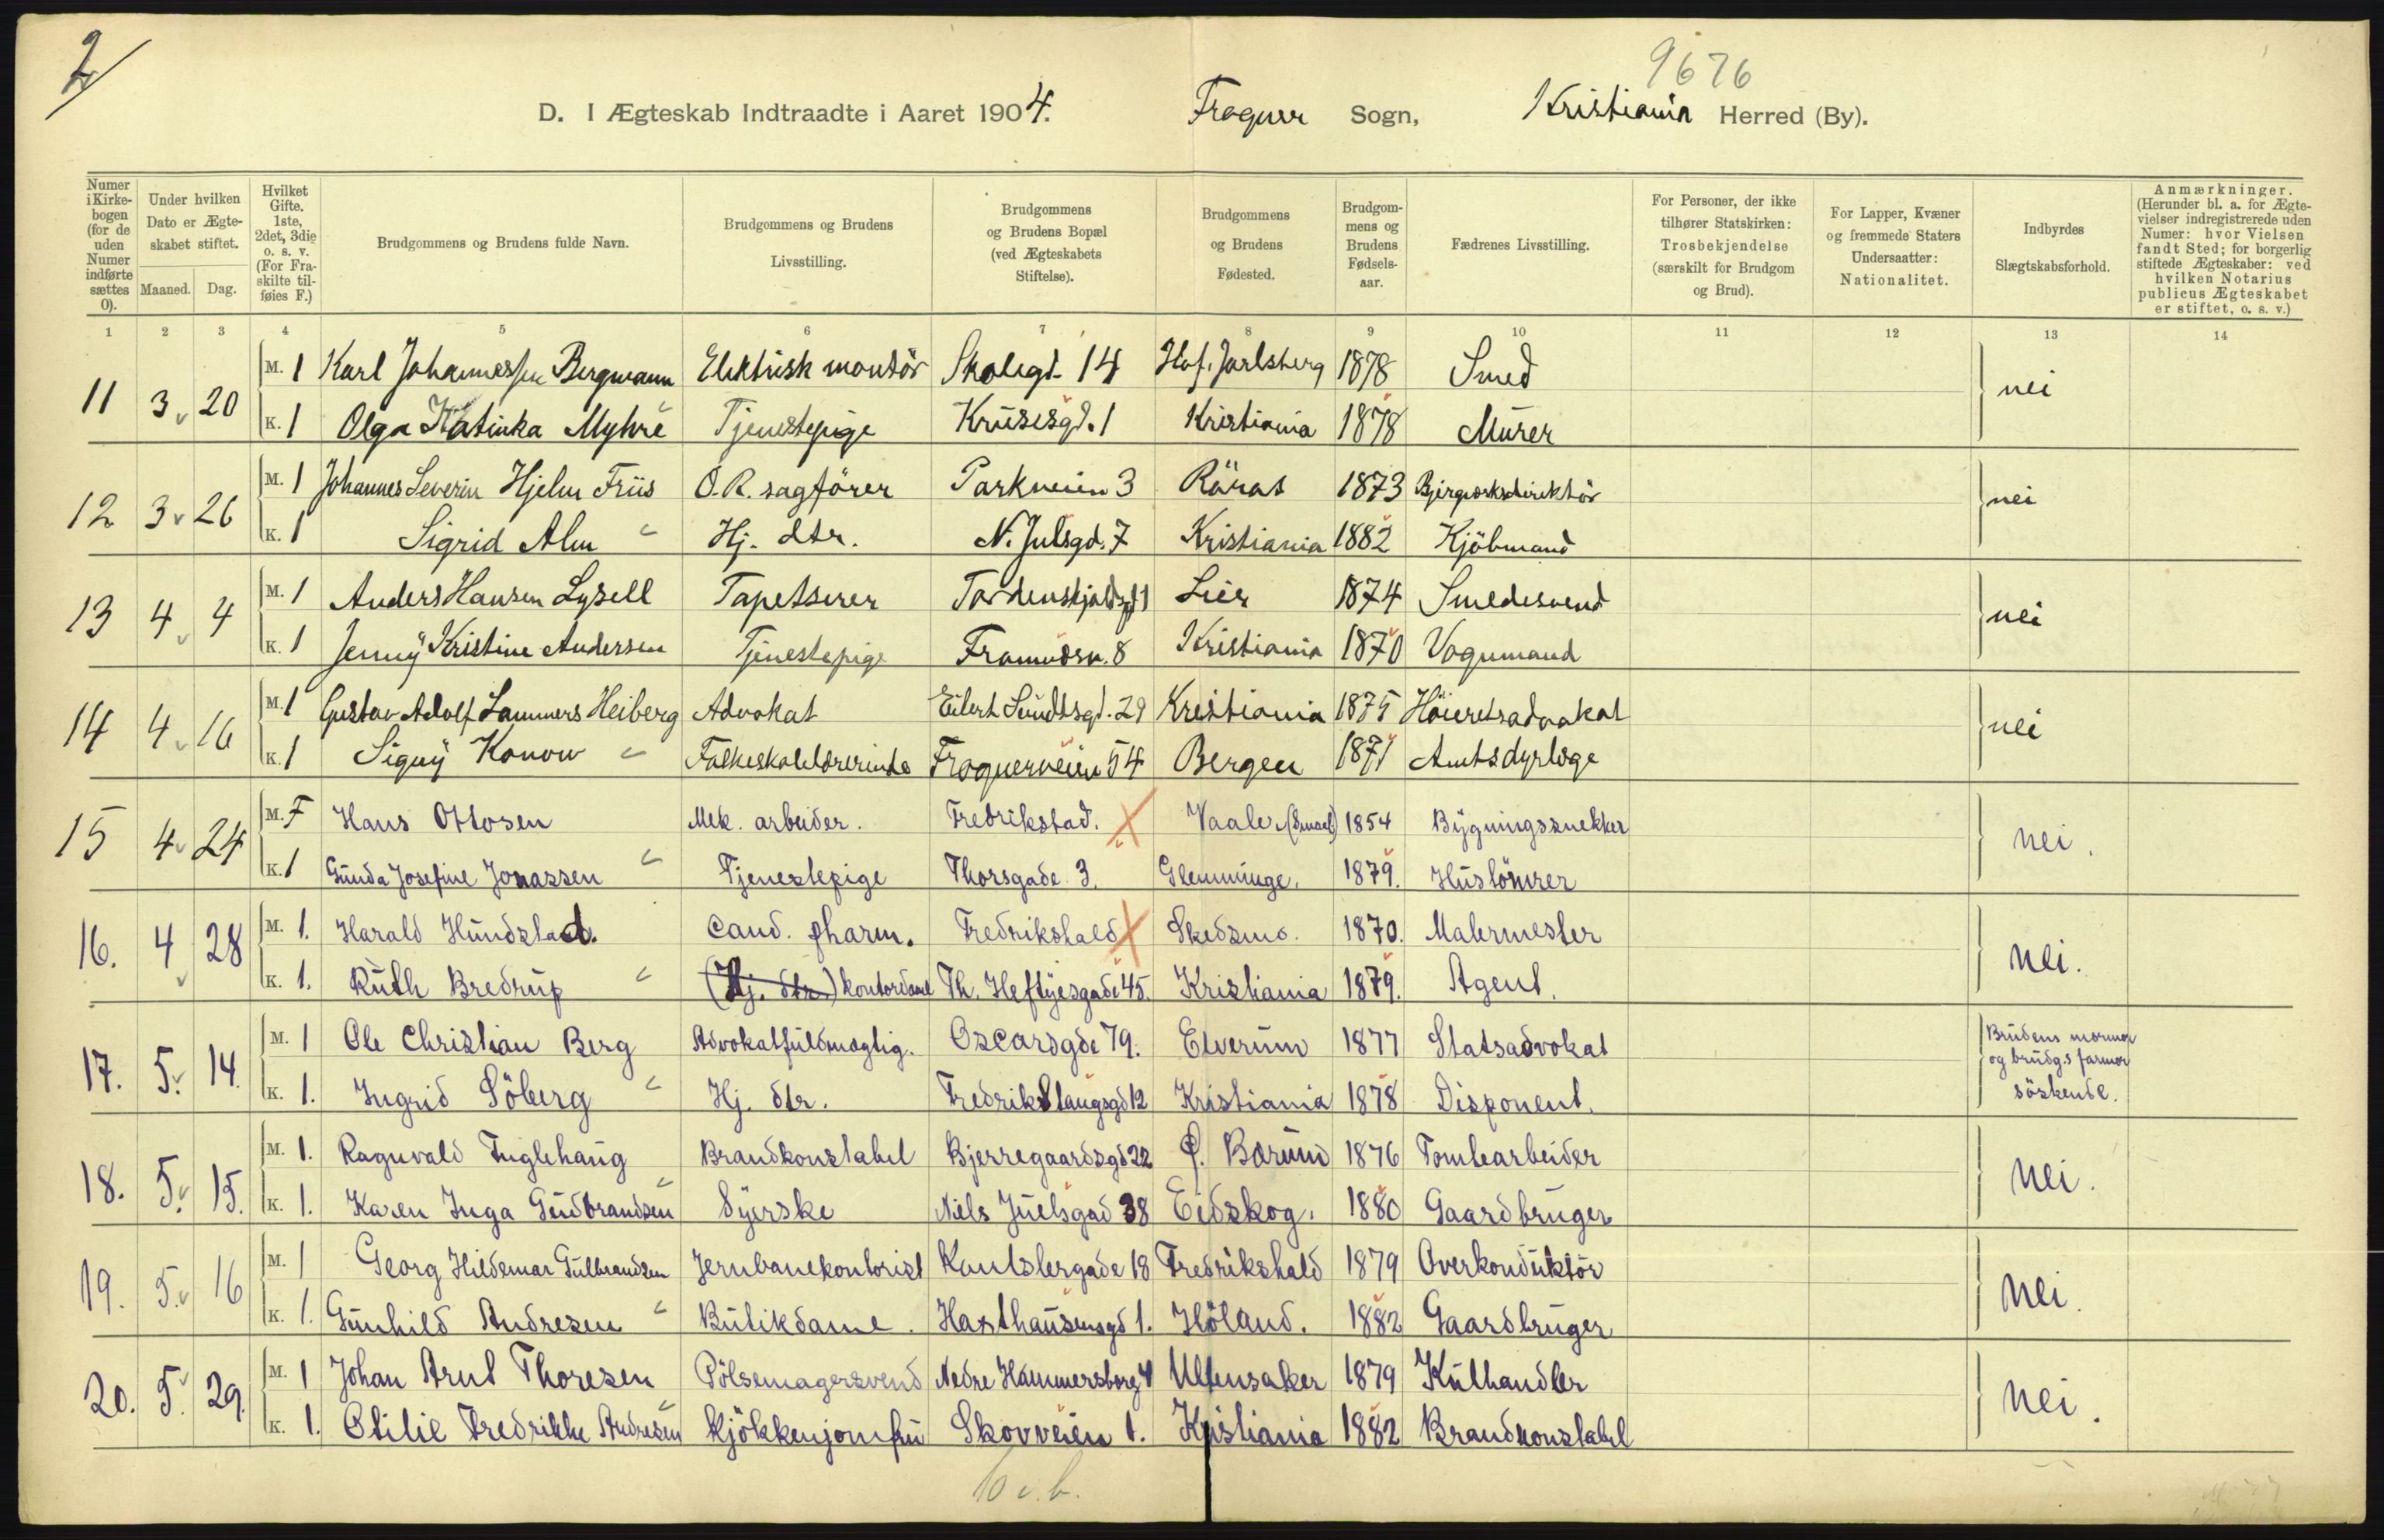 2
9676
D. I Ægteskab Indtraadte i Aaret 1904. Frogner Sogn, Kristiania Herred (By).
Numer i Kirkebogen (for de uden Numer indførte sættes 0).
Under hvilken Dato er Ægteskabet stiftet.
Maaned. Dag.
Hvilket Gifte. 1ste, 2det, 3die o. s. v. (For Fraskilte tilføies F.)
Brudgommens og Brudens fulde Navn.
Brudgommens og Brudens Livsstilling.
Brudgommens og Brudens Bopæl (ved Ægteskabets Stiftelse).
Brudgommens og Brudens Fødested.
Brudgommens og Brudens Fødselsaar.
Fædrenes Livsstilling.
For Personer, der ikke tilhører Statskirken: Trosbekjendelse (særskilt for Brudgom og Brud).
For Lapper, Kvæner og fremmede Staters Undersaatter: Nationalitet.
Indbyrdes Slægtskabsforhold.
Anmærkninger. (Herunder bl. a. for Ægtevielser indregistrerede uden Numer: hvor Vielsen fandt Sted; for borgerlig stiftede Ægteskaber: ved hvilken Notarius publicus Ægteskabet er stiftet, o. s. v.)
1 2 3 4 5 6 7 8 9 10 11 12 13 14
11 3 20 M. 1 Karl Johannessen Bergmann Elektrisk montör Skolegt. 14 Hof. Jarlsberg 1878 Smed nei
K. 1 Olga Katinka Myhre Tjenestepige Krusesgd. 1 Kristiania 1878 Murer
12 3 26 M. 1 Johannes Severin Hjelm Friis O.R. sagförer Parkveien 3 Röras 1873 Bjergverksdirektör nei
K. 1 Sigrid Alm Hj. dtr. N. Julsgd. 7 Kristiania 1882 Kjöbmand
13 4 4 M. 1 Anders Hansen Lysell Tapetserer Tordenskjoldsgd 1 Lier 1874 Smedesvend nei
K. 1 Jenny Kristine Andersen Tjenestepige Framnæsv. 8 Kristiania 1870 Vognmand
14 4 16 M. 1 Gustav Adolf Lammers Heiberg Advokat Eilert Sundtsgt. 29 Kristiania 1875 Höieretsadvokat nei
K. 1 Signy Konow Folkeskolelærerinde Frognerveien 54 Bergen 1871 Amtsdyrlæge
15 4 24 M. F Hans Ottosen Mek. arbeider. Fredrikstad. Vaaler (Smaal) 1854 Bygningssnekker nei.
K. 1 Gunda Josefine Jonassen Tjenestepige Thorsgade 3. Glemminge. 1879. Hustömrer
16. 4 28 M. 1. Harald Hundstad. Cand. pharm. Fredrikshald Skedsmo. 1870. Malermester nei.
K. 1. Ruth Bredrup (Hj. dtr.) kontordame Th. Heftyesgade 45. Kristiania 1879. Agent.
17. 5. 14. M. 1 Ole Christian Berg Advokatfuldmægtig. Oscarsgde 79. Elverum 1877 Statsadvokat Brudens mormor og brudg.s farmor söskende.
K. 1. Ingrid Söberg Hj. dtr. Fredrik Stangsgd 12 Kristiania 1878 Disponent.
18. 5. 15. M. 1. Ragnvald Fuglehaug Brandkonstabel Bjerregaardsgd 22 Ø. Bærum 1876 Tomtearbeider nei.
K. 1. Karen Inga Gudbrandsen Syerske Niels Juelsgad 38 Eidskog. 1880 Gaardbruger
19. 5. 16 M. 1 Georg Hildemar Gulbrandsen Jernbanekontorist Kuntslergade 18 Fredrikshald 1879 Overkonduktör nei.
K. 1. Gunhild Andresen Butikdame. Hasthausensgd 1. Höland. 1882 Gaardbruger
20. 5. 29. M. 1 Johan Arnt Thoresen Pölsemagersvend Nedre Hammersborg 4 Ullensaker 1879 Kulhandler nei.
K. 1. Otilie Fredrikke Andresen Kjökkenjomfru Skovveien 1. Kristiania 1882 Brandkonstabel